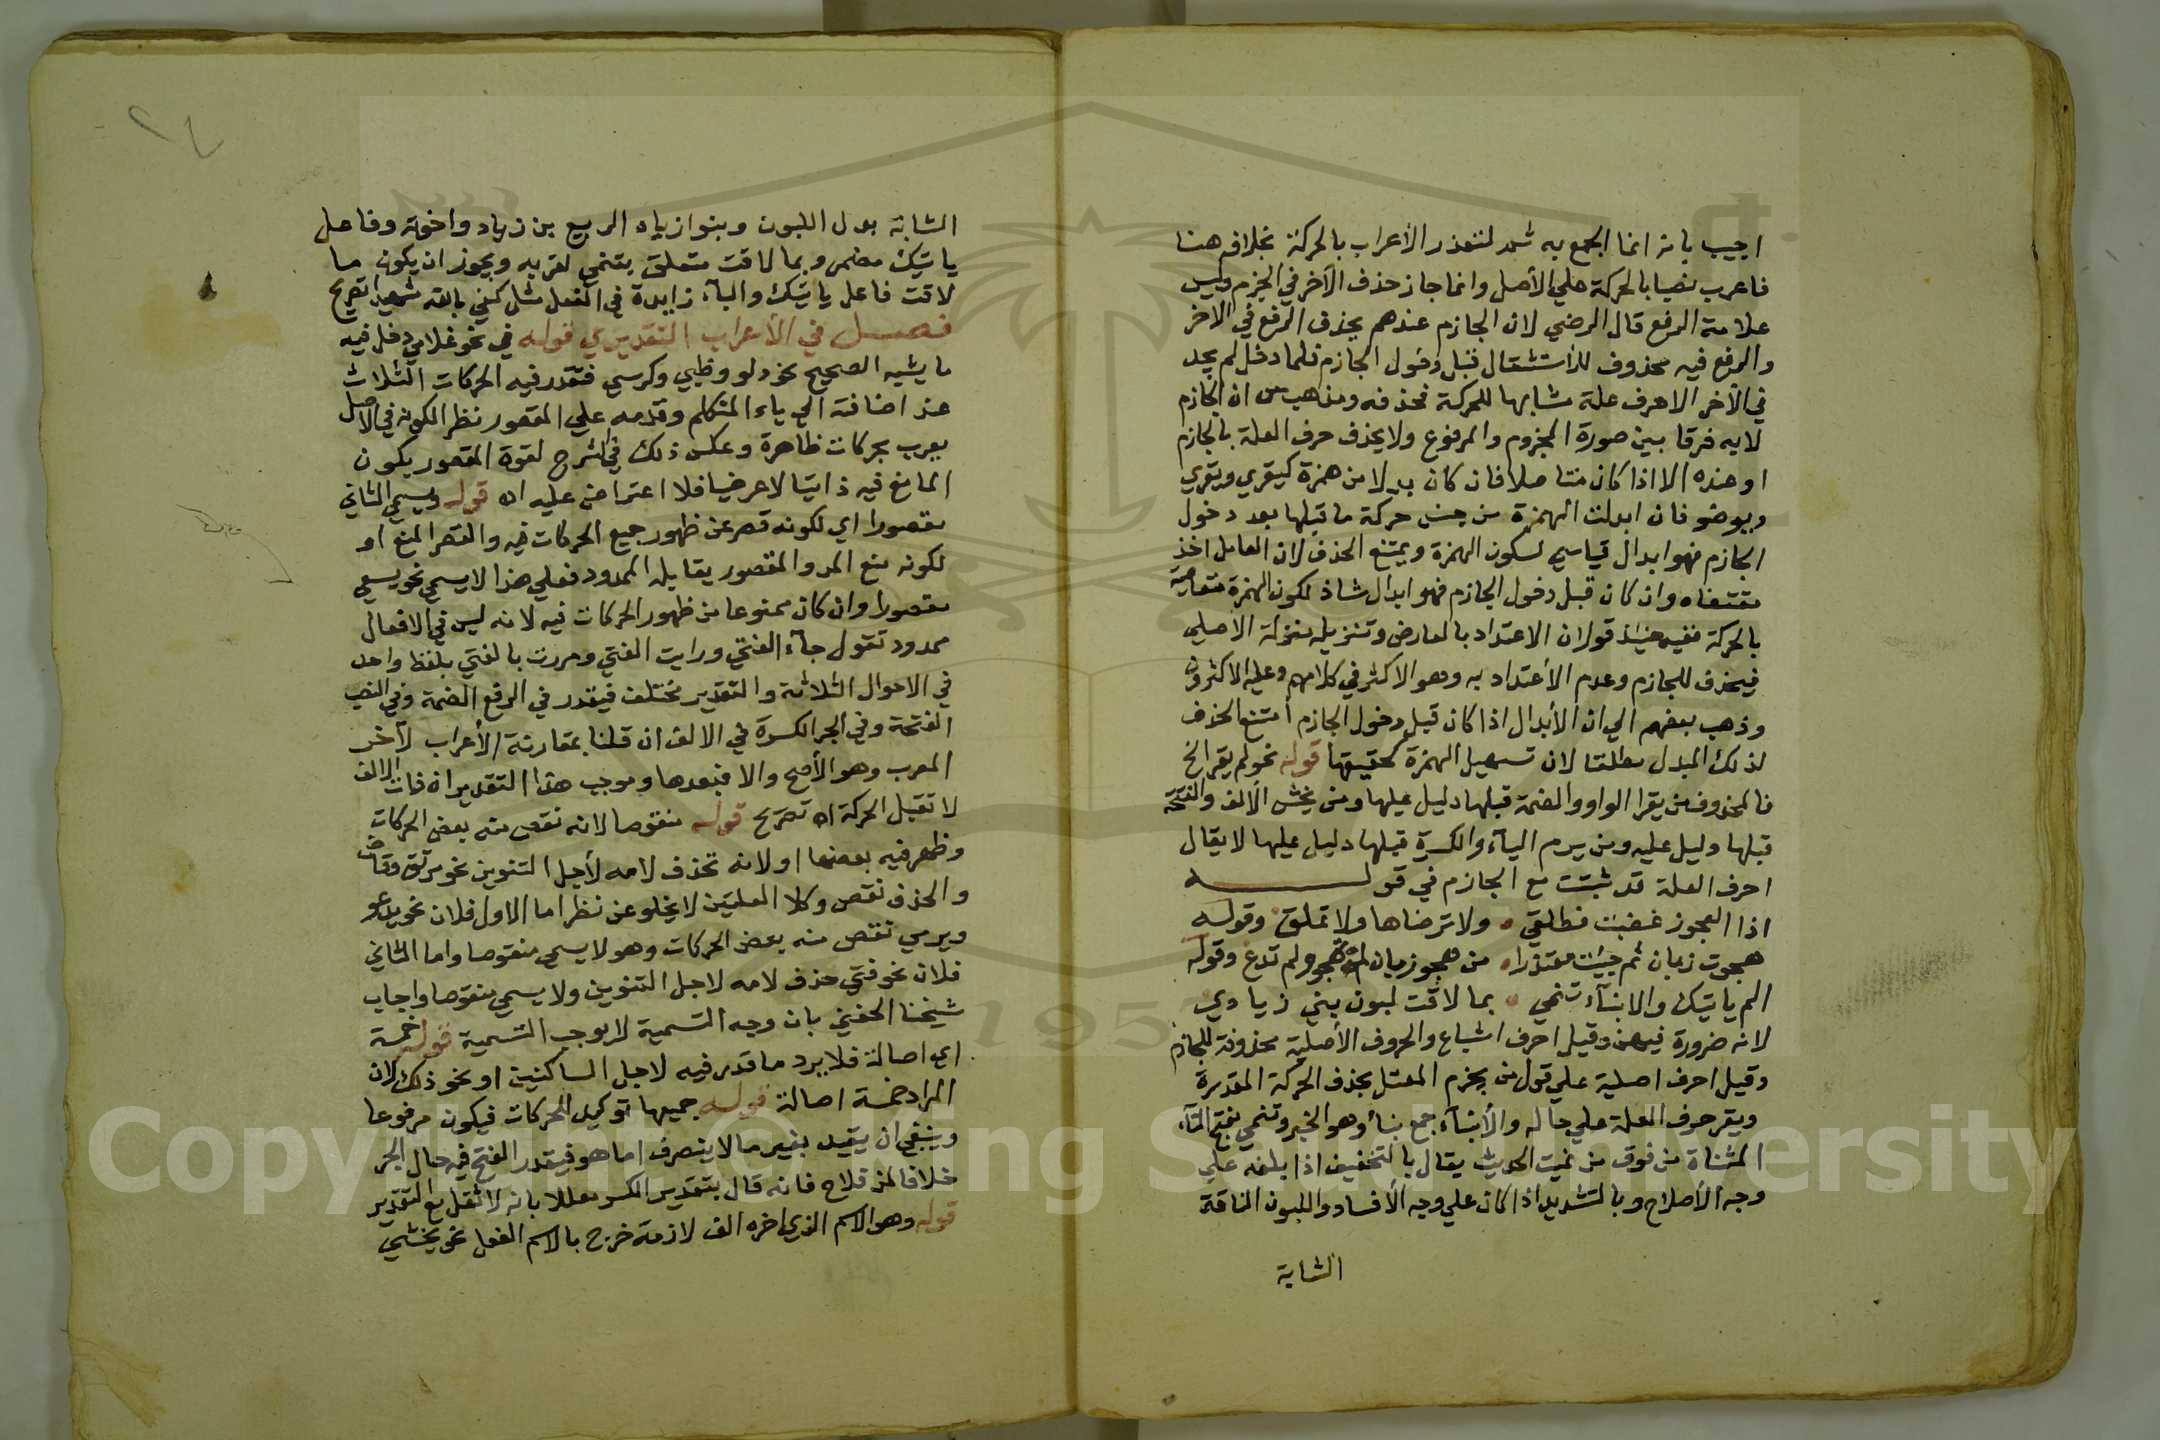 اجيب بانه انما الجمع به ثمه لتعذر الأعراب بالحركة بخلافه هنا
فاعرب نصبا بالحركة علي الأصل وانما جاز حذف الآخر في الجزم وليس
علامة الرفع قال الرضي لان الجازم عندهم يحذف الرفع في الآخر
والرفع فيه محذوف للاستثقال قبل دخول الجازم فلما دخل لم يجد
في الآخر الا حرف علة مشابها للحركة فحذفه ومذهب س ان الجازم
لابه فرقا بين صورة المجزوم والمرفوع ولا يحذف حرف العلة بالجازم
او عنده الا اذا كان متاصلا فان كان بدلا من همزة كيقري ويقري
ويوضو فان ابدلت الهمزة من جنس حركة ما قبلها بعد دخول
الجازم فهو ابدال قياسي لسكون الهمزة ويمتنع الحذف لان العامل اخذ
مقتضاه وان كان قبل دخول الجازم فهو ابدال شاذ لكون الهمزة متعاصية
بالحركة ففيه حينئذ قولان الاعتداد بالعارض وتنزيله منزلة الاصلي
فيحذف للجازم وعدم الأعتداد به وهو الاكثر في كلامهم وعليه الاكثرون
وذهب بعضهم الي ان الأبدال اذا كان قبل دخول الجازم امتنع الحذف
لذلك المبدل مطلقا لان تسهيل الهمزة كتحقيقها قوله نحو لم يقر الخ
فالمحذوف من يقرا الواو والضمة قبلها دليل عليها ومن يخش الألف والفتحة
قبلها دليل عليه ومن يرم الياء والكسرة قبلها دليل عليها لا يقال
احرف العلة قد ثبتت مع الجازم في قوله
اذا العجوز غضبت فطلقي ه ولا ترضاها ولا تملق وقوله
هجوت زبان ثم جيت معتذرا ه من هجو زبان لم تهجو ولم تدع وقوله
الم ياتيك والانبآء تنمي ه بما لاقت لبون بني زيادي
لانه ضرورة فيهن وقيل احرف اشباع والحروف الأصلية محذوفة للجازم
وقيل احرف اصلية علي قول من يجزم المعتل بحذف الحركة المقدرة
ويقر حرف العلة علي حاله والأنباء جمع نبأ وهو الخبر وتنمي بفتح التآء
المثناة من فوق من نميت الحديث يقال بالتخفيف اذا بلغه علي
وجه الأصلاح وبالتشديد اذا كان علي وجه الأفساد واللبون الناقة
الشابة
الشابة بدل اللبون وبنوا زياد الربيع بن زياد واخوته وفاعل
ياتيك مضمر وبما لاقت متعلق بتنمي لقربه ويجوز ان يكون ما
لاقت فاعل ياتيك والبآء زايدة في الفعل مثل كفي بالله شهيدا تصريح
فصل في الأعراب التقديري قوله في نحو غلامي دخل فيه
ما يشبه الصحيح نحو دلو وظبي وكرسي فتقدر فيه الحركات الثلاث
عند اضافته الي ياء المتكلم وقدمه علي المقصور نظرا لكونه في الاصل
يعرب بحركات ظاهرة وعكس ذلك في الشرح لقوة المقصور بكون
المانع فيه ذاتيا لا عرضيا فلا اعتراض عليه اه قوله ويسمي الثاني
مقصورا اي لكونه قصر عن ظهور جميع الحركات فيه والقصر المنع او
لكونه منع المد والمقصور يقابله الممدود فعلي هذا لا يسمي نحو يسعي
مقصورا وان كان ممنوعا من ظهور الحركات فيه لانه ليس في الافعال
ممدود تقول جآء الفتي ورايت الفتي ومررت بالفتي بلفظ واحد
في الاحوال الثلاثة والتقدير مختلف فيقدر في الرفع الضمة وفي النصب
الفتحة وفي الجر الكسرة في الالف ان قلنا بمقارنة الأعراب لآخر
المعرب وهو الأصح والا فبعدها وموجب هذا التقدير ان ذات الالف
لا تقبل الحركة اه تصريح قوله منقوصا لانه نقص منه بعض الحركات
وظهر فيه بعضها او لانه تحذف لامه لأجل التنوين نحو مرتق وقاض
والحذف نقص وكلا العلتين لا يخلو عن نظر اما الاول فلان نحو يدعو
ويرمي نقص منه بعض الحركات وهو لا يسمي منقوصا واما الثاني
فلان نحو فتي حذف لامه لاجل التنوين ولا يسمي منقوصا واجاب
شيخنا الحفني بان وجه التسمية لا يوجب التسمية قوله خمسة
اي اصالة فلا يرد ما قدر فيه لاجل الساكنين او نحو ذلك لان
المراد خمسة اصالة قوله جميعها توكيد للحركات فيكون مرفوعا
وينبغي ان يقيد بغير ما لا ينصرف اما هو فيقدر الفتح في حال الجر
خلافا لابن فلاح فانه قال بتقدير الكسر معللا بانه لا ثقل مع التقدير
قوله وهو الاسم الذي اخره الف لازمة خرج بالاسم الفعل نحو يخشي
Copyright © King Saud University
1957